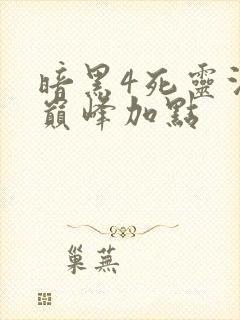 暗黑4死靈法
巔峰加點
巢蕪